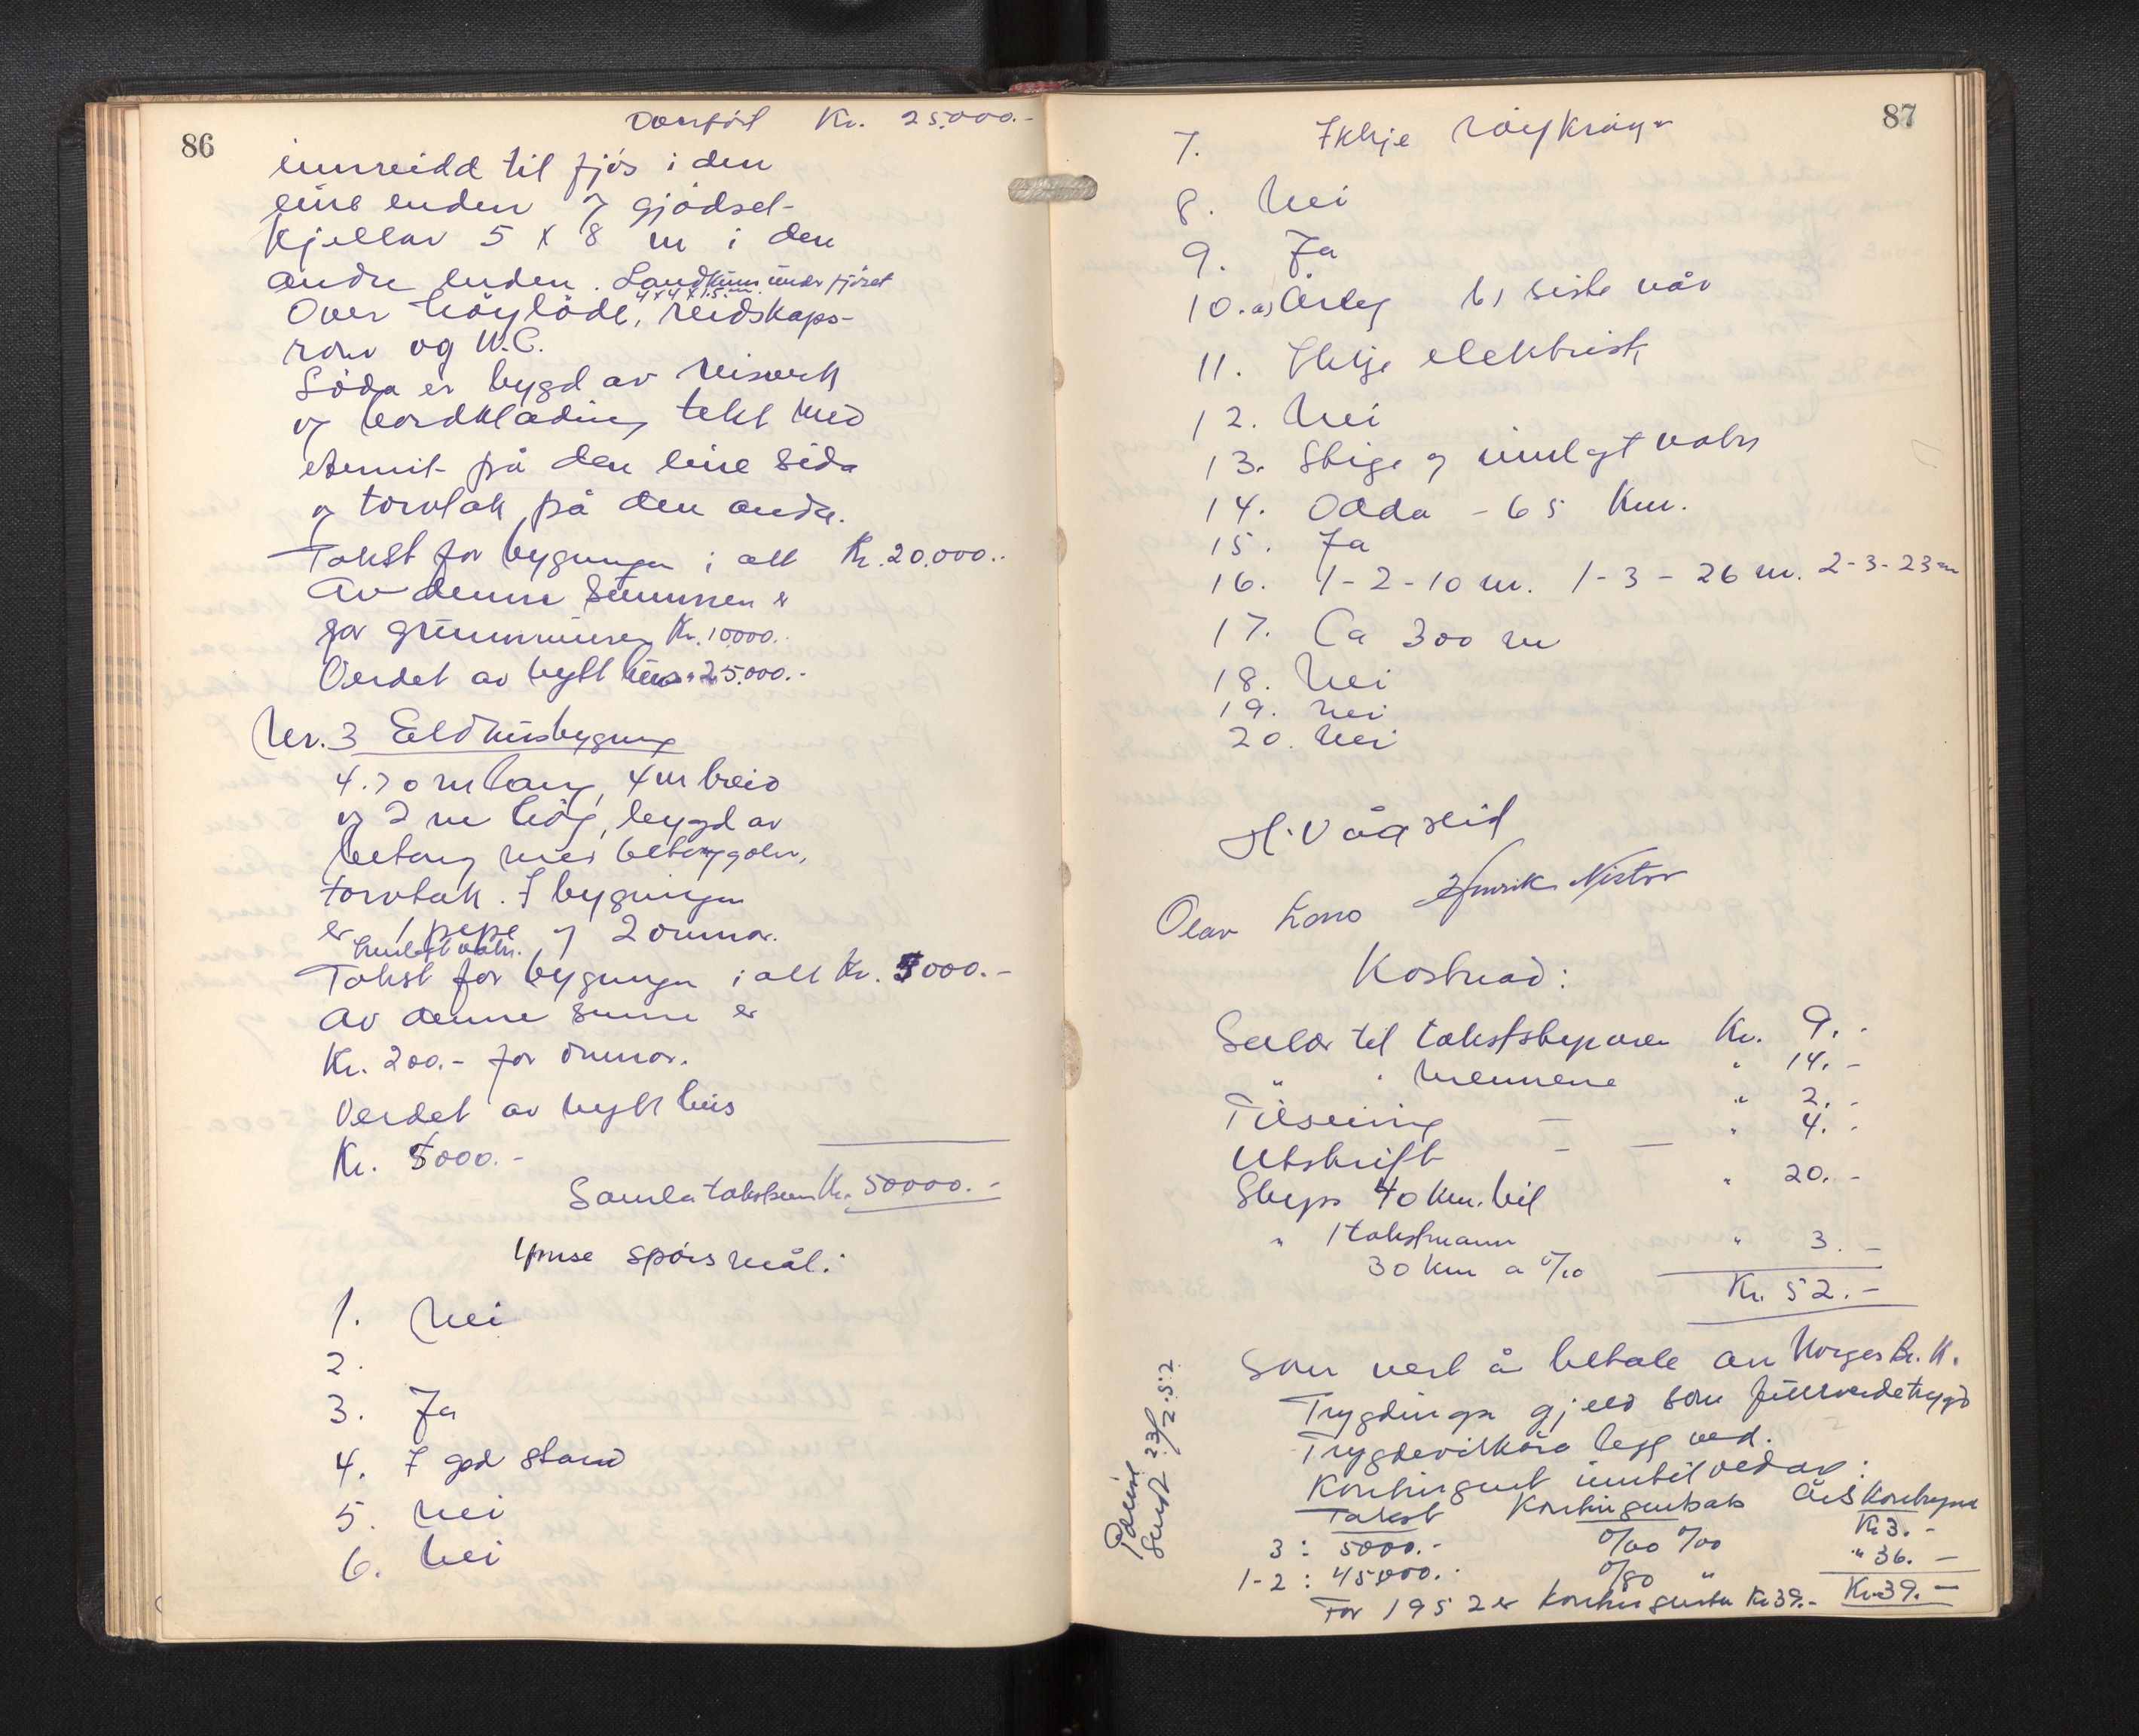 86
Overført Kr. 25.000.-
innreidd til fjös i den
eine enden og gjödsel-
kjellar 5 x 8 m i den
andre enden. Landkum under fjöset
4 x 4 x 1.5.
Over höylöde, reidskaps-
rom og W.C.
Löda er bygd av reisverk
og bordklædning tekt med
eternit på den eine sida
og torvtak på den andre.
Takst for bygningen i alt Kr. 20.000.-
Av denne summen er
for grunnmuren Kr. 10000.-
Verdet av nytt hus " 25.000.-
Nr. 3 Eldhusbygning
4.70 m lang, 4 m breid
og 2 m hög, bygd av
betong med betonggolv,
torvtak. I bygningen
er 1 pipe og 2 omnar.
Innlagt vatn.
Takst for bygningen i alt Kr. 5000.-
Av denne summe er
Kr. 200.- for omnar.
Verdet av nytt hus
Kr. 5000.-
Samla takstsum Kr. 50000.-
Ymse spörsmål:
1. Nei
2.
3. Ja
4. I god stand
5. Nei
6. Nei
87
7. Ikkje röykrøyr
8. Nei
9. Ja
10. a) Årleg b) siste vår
11. Ikkje elektrisk
12. Nei
13. Stige og innlagt vatn
14. Odda - 65 km.
15. Ja
16. 1-2-10 m. 1-3-26 m. 2-3-23 m
17. Ca 300 m
18. Nei
19. Nei
20. Nei
H. Vågreid
Henrik Nistov
Olav
Kostnad:
Salær til takstskrivaren Kr. 9.-
" " mennene " 14.-
Tilsening - " 2.-
Utskrift - - " 4.-
Skyss 40 km. bil " 20.-
" 1 takstmann " 3.-
30 km a 0/10
Kr. 52.-
Som vert å betale av Norges Br. K.
Trygdinga gjeld som fullverdetrygd
Trygdevilkåra legg ved.
Kontingent inntil vedav:
Takst Kontingentsats Års Kontingent
3 : 5000.- 0/60 %00 Kr 3.-
1-2 : 45000.- 0/80 " " 36.-
Kr. 39.-
For 1952 er kontingenten Kr 39.-
Polise
Sendt 23/2.52